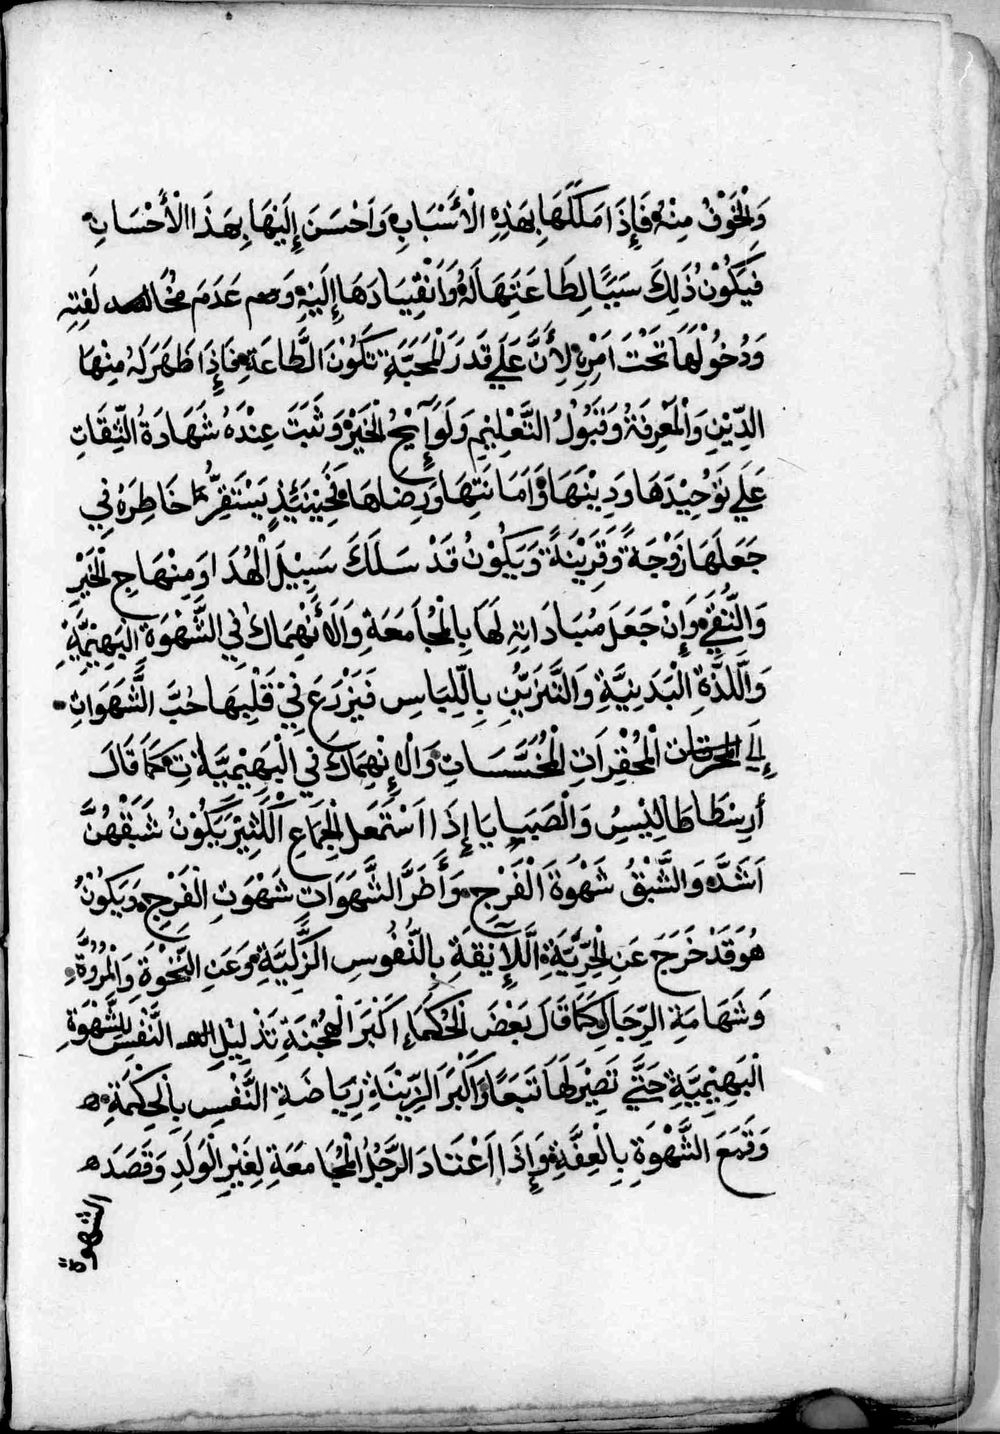 وَالْخَوْفُ مِنْهُ فَإِذَا مَلَكَهَا بِهَذِهِ الْأَسْبَابِ وَأَحْسَنَ إِلَيْهَا بِهَذَا الْأَحْسَانِ
فَيَكُوْنُ ذَلِكَ سَبَبًا لِطَاعَتِهَا لَهُ وَأَنْقِيَادَهَا إِلَيْهِ وَ عَدَمَ لَفِتِهِ
وَدُخُوْلَهَا تَحْتَ امْرِهِ لِأَنَّ عَلَي قَدَرَ الْمَحَبَّةِ تَكُوْنَ الطَّاعَةِ فَإِذَا ظَهَرَ لَهُ مِنْهَا
الدِّيْنِ وَالْمَعْرِفَةُ وَقَبُوْلُ التَّعْلِيْمِ وَلَوَآيِحُ الْخَيْرُ وَثَبَتَ عِنْدَهُ شَهَادَةُ الثِّقَاتِ
عَلَي تَوْحِيْدَهَا وَدِيْنَهَا وَأَمَانَتِهَا وَرِضَاهَا فَحِيْنَئِذٍ يَسْتَقِرُّ خَاطِرَهُ فِي
جَعَلَهَا زَوْجَةً وَقَرِيْنَةً وَيَكُوْنُ قَدْ سَلَكَ سَبِيْلَ الْهُدَا وَمِنْهَاجِ الْخَيْرِ
وَالتُّقَي وَإِنْ جَعَلَ مُبَادَاتِهِ لَهَا بِالْمُجَامَعَةِ وَالْأَنْهِمَاكُ فِي الشَّهْوَةِ الْبَهِيْمِيَّةِ
وَاللَّذَّةِ الْبَدَنِيَّةِ وَالتَّزَيُّنِ بِاللِّبَاسِ فَيَزْرَعَ فِيْ قَلْبِهَا حُبَّ الشَّهَوَاتِ
إِلَي الْمُحْقِرَاتِ الْمُخَسَّسَاتِ وَالْإِنْهِمَاكَ فِي الْبَهِيْمِيَّاتِ كَمَا قَالَ
أَرِسْطَاطَالِيْسُ وَالْصَبَايَا إِذَا اسْتَعْمَلَ الْجِمَاعِ الْكَثِيْرُ يَكُوْنُ شَبَقُهُنَّ
اَشَدَّ وَالشَّبْقُ شَهْوَةَ الْفَرْجِ وَأَضَرَّ الشَّهَوَاتِ شَهْوَتِ الْفَرْجِ وَيَكُوْنُ
هُوَ قَدْ خَرَجَ عَنِ الْحُرِّيَّةِ اللَّآئِقَةِ بِالنُّفُوسِ الزَّكِيَّةِ وَعَنِ النَّخْوَةِ وَالْمُرُوَّةِ
وَشَهَامَةِ الرِّجَالِ كَمَا قَالَ بَعْضَ الْحُكَمَاءِ اكْبَرَ الْهُجْنَةِ تَذْلِيْلِ النَّفْسِ لِلشَّهْوَةِ
الْبَهِيْمِيَّةِ حَتَّي تَصِيْرَ لَهَا تَبَعًا وَأَكْبَرَ الزِّيْنَةِ رِيَاضَةِ النَّفْسِ بِالْحِكْمَةِ
وَقَمَعَ الشَّهْوَةِ بِالْعِفَّةِ وَإِذَا اَعْتَادَ الرَّجُلُ الْمُجَامَعَةِ لِغَيْرِ الْوَلَدِ وَقَصَدَ
الشهوة